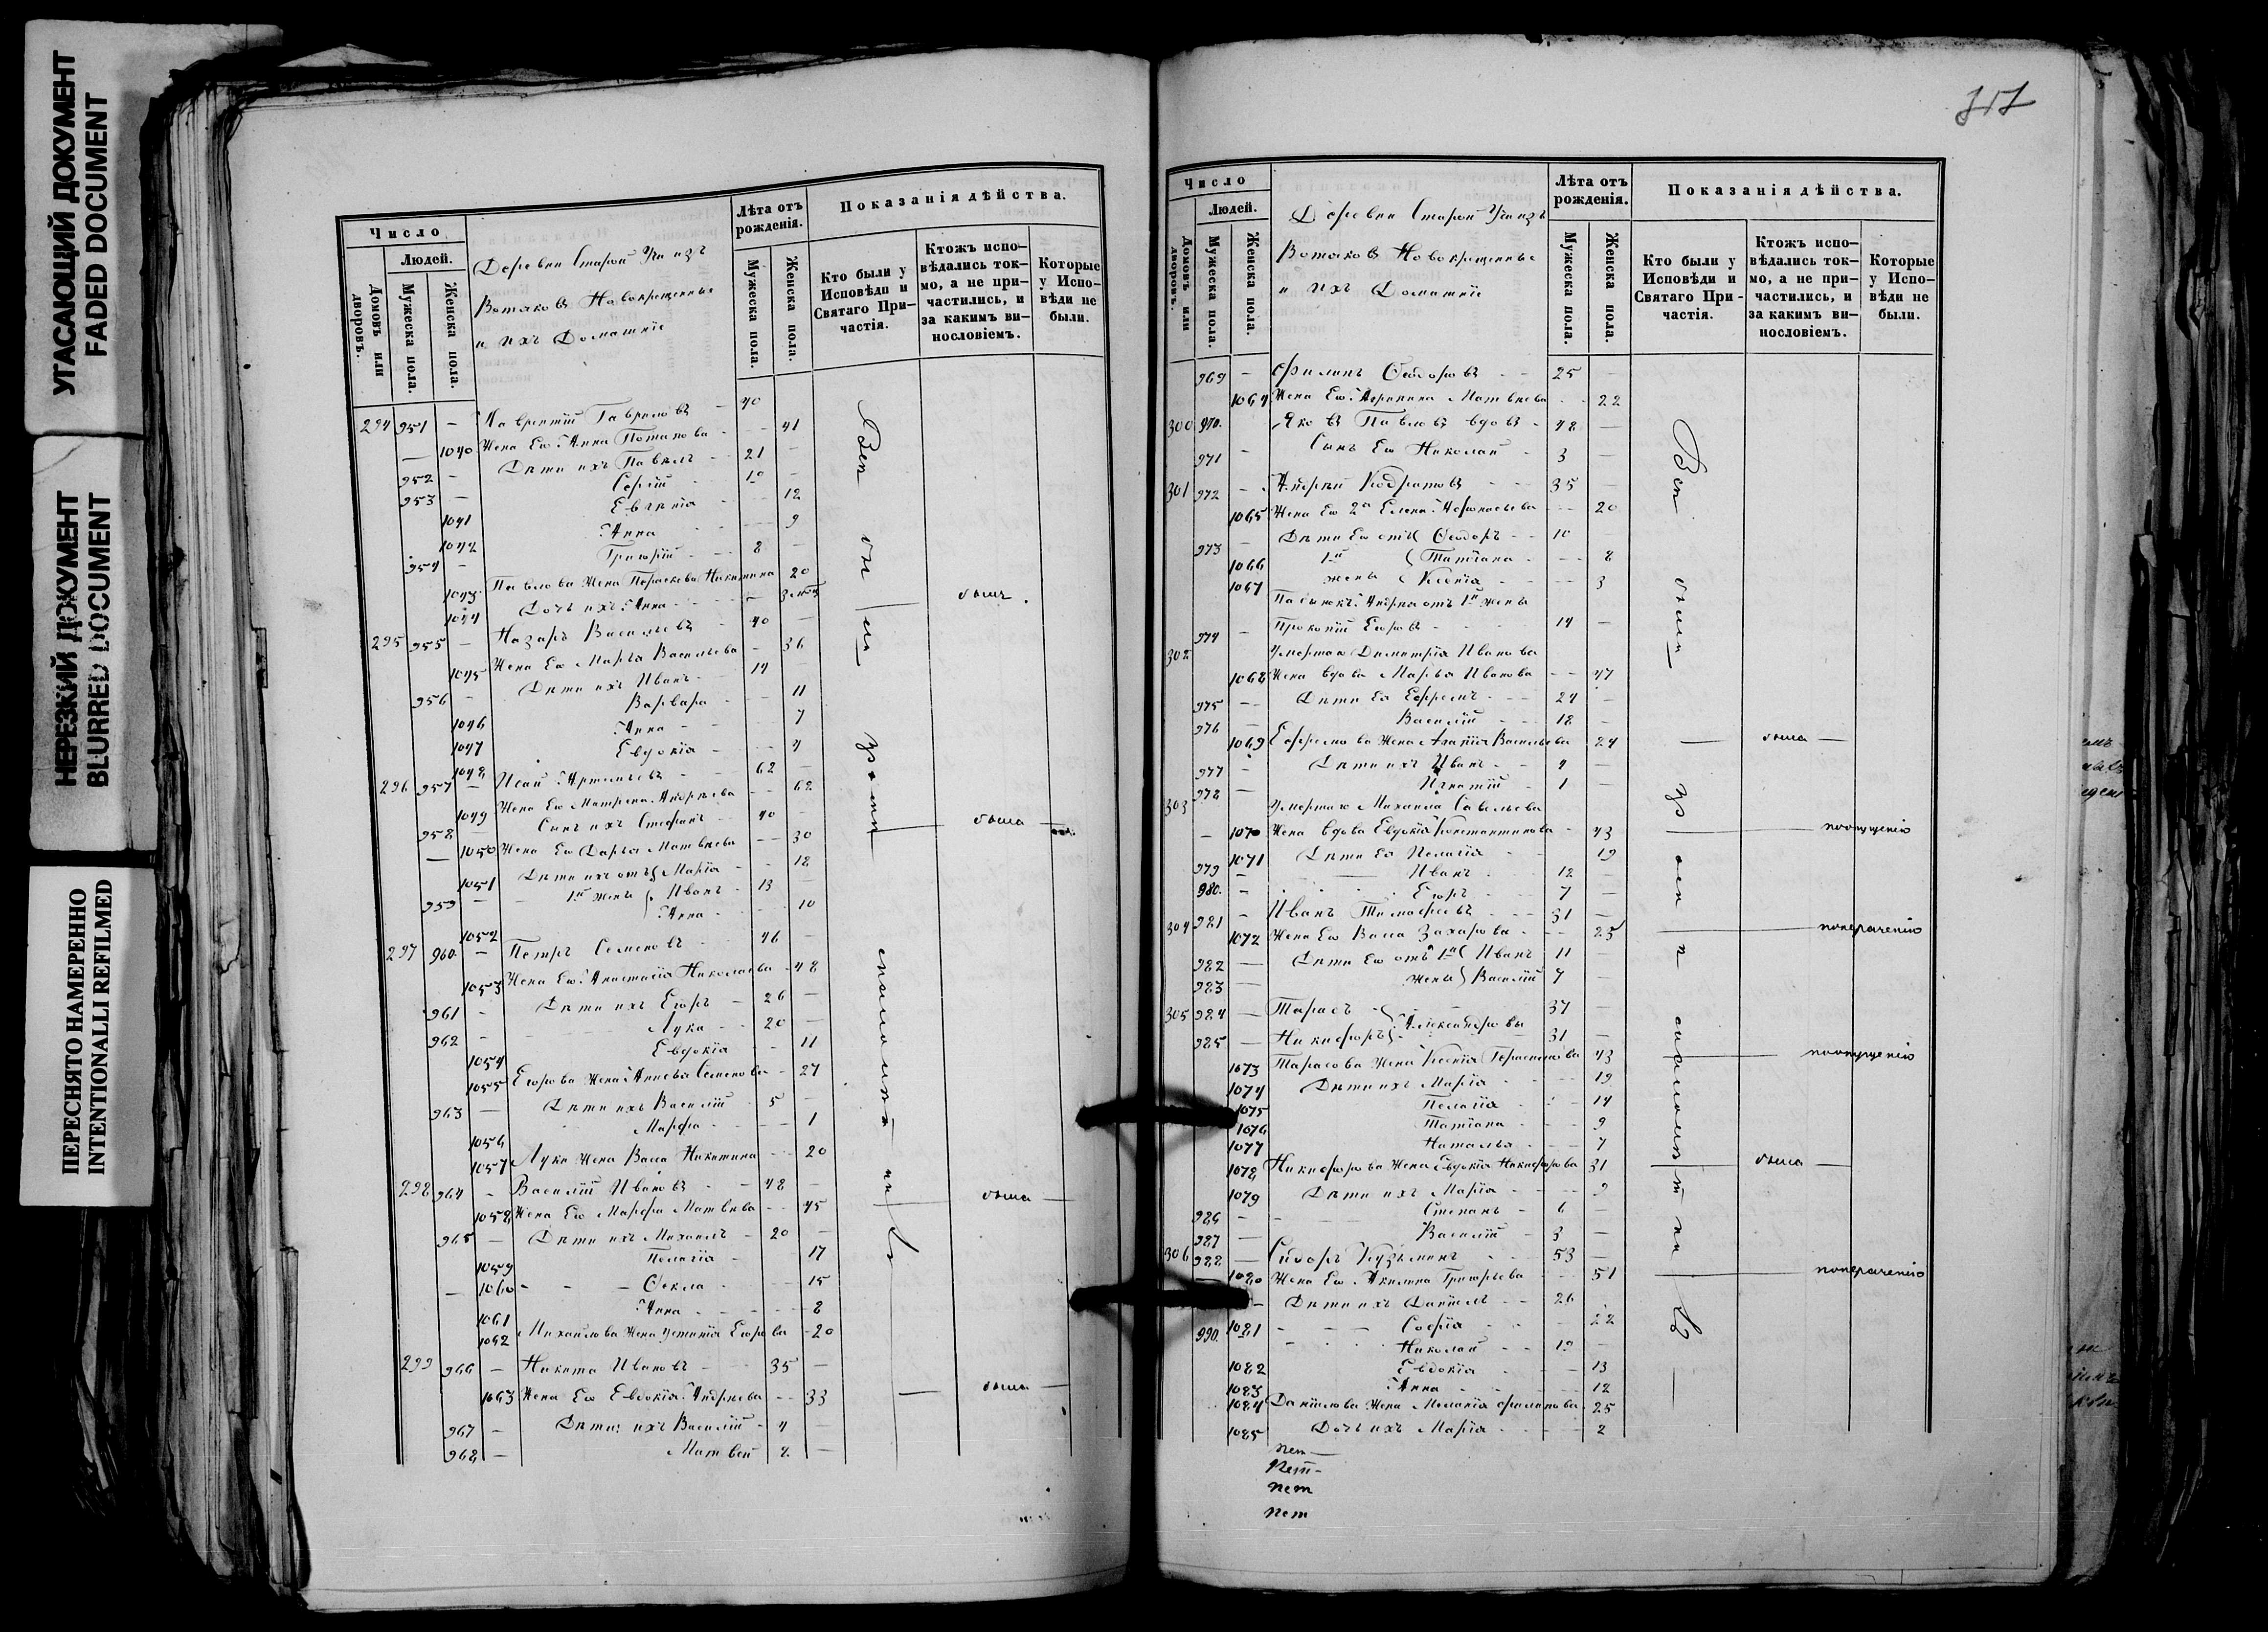 УГАСАЮЩИЙ ДОКУМЕНТ
FADED DOCUMENT
НЕРЕЗКИЙ ДОКУМЕНТ
BLURRED DOCUMENT
ПЕРЕСНЯТО НАМЕРЕННО
INTENTIONALLI REFILMED
Число
Людей.
Домовъ или дворовъ.
Мужеска пола.
Женска пола.
Деревни Старой Учи изъ
Вотяковъ Новокрещенные
и ихъ Домашніе
Лѣта отъ рожденія.
Мужеска пола.
Женска пола.
Показанія дѣйства.
Кто были у Исповѣди и Святаго Причастія.
Ктожъ исповѣдались токмо, а не причастились, и за какимъ винословіемъ.
Которые у Исповѣди не были.
294 951 - Лаврентій Гавриловъ - 40
1040 Жена Его Анна Потапова - 41
952 - Дѣти ихъ Павелъ - 21
953 - Сергій 10 -
1041 Евгенія - 12
1042 Анна - 9
954 - Григорій - 8 -
1043 Павлова Жена Параскева Никитина 20
1044 Дочь ихъ Анна -
295 955 - Назаръ Васильевъ - 40 -
1045 Жена Его Марѳа Васильева - 36
956 - Дѣти ихъ Иванъ - 14
1046 Варвара - 11
1047 Анна - 7
1048 Евдокія - 4
296 957 - Исай Артемьевъ - 62 -
1049 Жена Его Матрена Андреева - 62
958 - Сынъ ихъ Стефанъ - 40 -
1050 Жена Его Дарья Матвѣева - 30
1051 Дѣти ихъ отъ Марія - 18
959 - 1й жены Иванъ - 13 -
1052 Анна - 10
297 960 - Петръ Семеновъ - 46 -
1053 Жена Его Анастасія Николаева - 48
961 - Дѣти ихъ Егоръ - 26 -
962 - Лука - 20 -
1054 Евдокія - 11
1055 Егорова Жена Анисья Семенова - 27
963 - Дѣти ихъ Василій - 5 -
1056 Марѳа - 1
1057 Луки Жена Васса Никитина - 20
298 964 - Василій Ивановъ - 48 -
1058 Жена Его Марѳа Матвѣева - 45
965 - Дѣти ихъ Михаилъ - 20 -
1059 Пелагія - 17
1060 - Ѳекла - 15
1061 Анна - 8
1062 Михайлова Жена Устинія Егорова - 20
299 966 - Никита Ивановъ - 35 -
1063 Жена Его Евдокія Андреева - 33
967 - Дѣти ихъ Василій - 4 -
968 - Матвей 2 -
Всѣ были
Число
Людей.
Домовъ или дворовъ.
Мужеска пола.
Женска пола.
Деревни Старой Учи изъ
Вотяковъ Новокрещенные
и ихъ Домашніе
Лѣта отъ рожденія.
Мужеска пола.
Женска пола.
Показанія дѣйства.
Кто были у Исповѣди и Святаго Причастія.
Ктожъ исповѣдались токмо, а не причастились, и за какимъ винословіемъ.
Которые у Исповѣди не были.
969 - Филипъ Ѳедоровъ - 25 -
1064 Жена Его Агрипина Матвѣева - 22
300 970. Яковъ Павловъ вдовъ - 48 -
971 - Сынъ Его Николай - 3 -
301 972 - Андрей Кодратовъ - 35 -
1065 Жена Его 2я Елена Аѳонасьева - 20
973 - Дѣти Его отъ Ѳеодоръ - 10
1066 1й Татіана - 8
1067 жены Ксенія - 3
Пасынокъ Андрея отъ 1й жены
974 - Прокопій Егоровъ - 14 -
302 Умершаго Димитрія Иванова
1068 Жена вдова Марья Иванова - 47
975 - Дѣти Ея Ефремъ - 24 -
976 - Василій - 18 -
1069 Ефремова Жена Агапія Васильева - 24
977 - Дѣти ихъ Иванъ - 4 -
978 - Игнатій - 1 -
303 Умершаго Михаила Савельева
- 1070 Жена вдова Евдокія Константинова - 43 поопущенію
1071 Дѣти Ея Пелагія - 19
979 - Иванъ - 12 -
980. - Егоръ - 7 -
304 981 - Иванъ Тимоѳеевъ - 31 -
1072 Жена Его Васса Захарова - 25
982 - Дѣти Его отъ 1й Иванъ 11 -
983 - жены Василій 7 -
305 984 - Тарасъ 37 -
Александровы
985 - Никифоръ 31 -
1073 Тарасова Жена Ксенія Герасимова 43 поопущенію
1074 Дѣти ихъ Марія - 19
1075 Пелагія - 14
1076 Татіана - 9
1077 Наталья - 7
1078 Никифорова Жена Евдокія Никифорова 31
1079 Дѣти ихъ Марія - 9
986 - Степанъ - 6 -
987 - Василій - 3 -
306 988 - Сидоръ Кузьминъ - 53 -
1080 Жена Его Акилина Григорьева - 51
- Дѣти ихъ Даніилъ - 26
1081 - Софія - 22
990. Николай - 19 -
1082 Евдокія - 13
1083 Анна - 12
1084 Даніилова Жена Меланія Филипова 25
1085 Дочь ихъ Марія - 2
Всѣ были